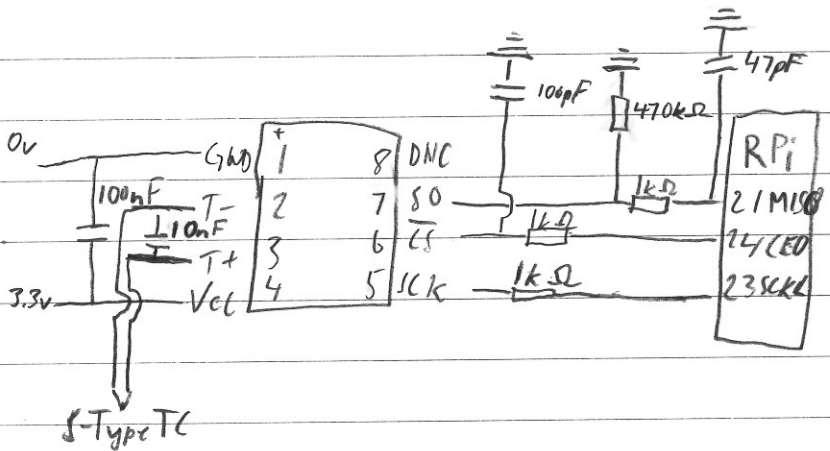 47pF
100pF
470kΩ
RPi
0v
GND
+
1
8
DNC
100nF
T-
2
7
SO
1kΩ
21MISO
10nF
T+
3
6
CS
1kΩ
24CE0
3.3v
Vcc
4
5
SCK
1kΩ
23SCKL
S-Type TC